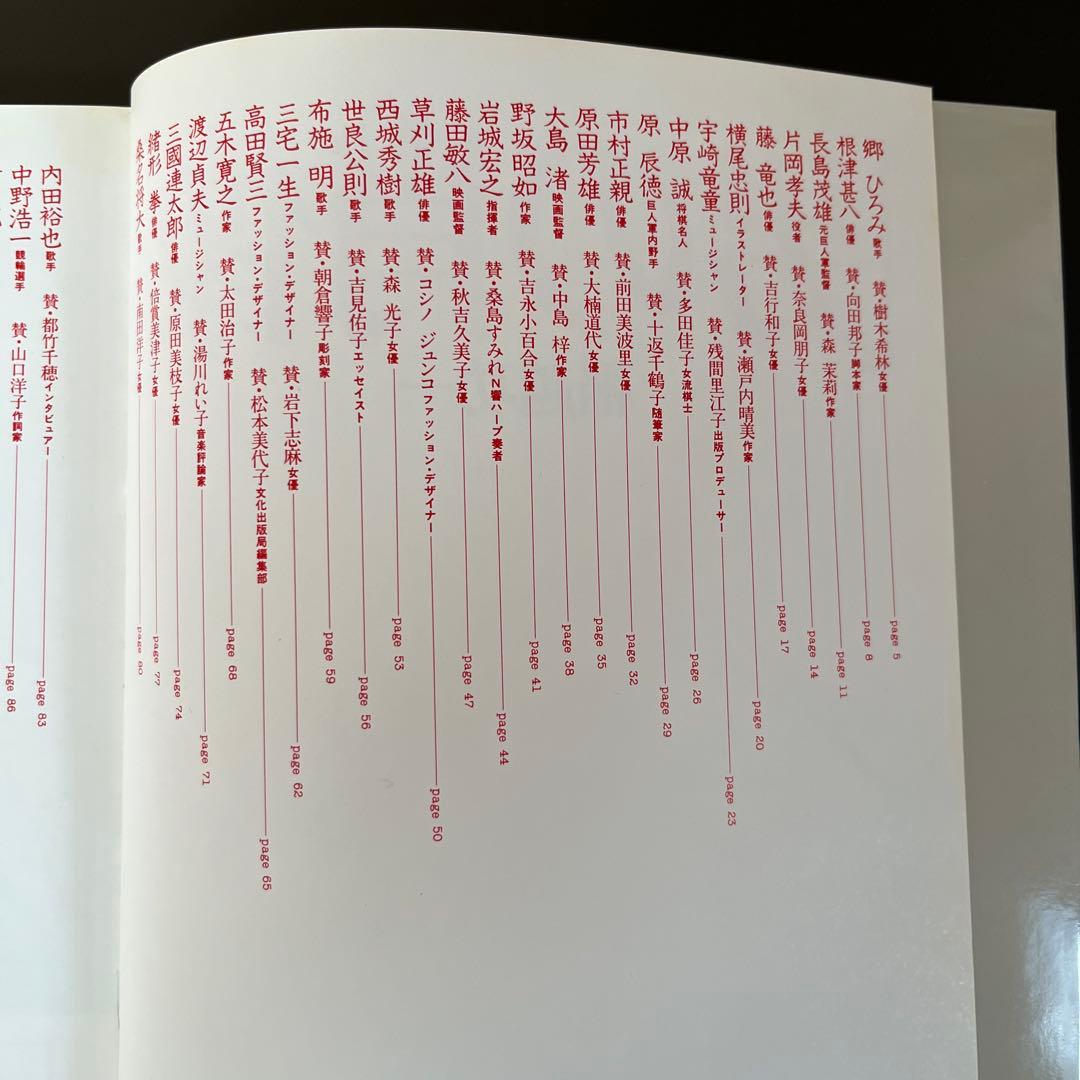 郷 ひろみ 歌手 賛・樹木希林 女優 page 5
根津甚八 俳優 賛・向田邦子 脚本家 page 8
長島茂雄 元巨人軍監督 賛・森 茉莉 作家 page 11
片岡孝夫 役者 賛・奈良岡朋子 女優 page 14
藤 竜也 俳優 賛・吉行和子 女優 page 17
横尾忠則 イラストレーター 賛・瀬戸内晴美 作家 page 20
宇崎竜童 ミュージシャン 賛・残間里江子 出版プロデューサー page 23
中原 誠 将棋名人 賛・多田佳子 女流棋士 page 26
原 辰徳 巨人軍内野手 賛・十返千鶴子 随筆家 page 29
市村正親 俳優 賛・前田美波里 女優 page 32
原田芳雄 俳優 賛・大楠道代 女優 page 35
大島 渚 映画監督 賛・中島 梓 作家 page 38
野坂昭如 作家 賛・吉永小百合 女優 page 41
岩城宏之 指揮者 賛・桑島すみれ N響ハープ奏者 page 44
藤田敏八 映画監督 賛・秋吉久美子 女優 page 47
草刈正雄 俳優 賛・コシノ ジュンコ ファッション・デザイナー page 50
西城秀樹 歌手 賛・森 光子 女優 page 53
世良公則 歌手 賛・吉見佑子 エッセイスト page 56
布施 明 歌手 賛・朝倉響子 彫刻家 page 59
三宅一生 ファッション・デザイナー 賛・岩下志麻 女優 page 62
高田賢三 ファッション・デザイナー 賛・松本美代子 文化出版局編集部 page 65
五木寛之 作家 賛・太田治子 作家 page 68
渡辺貞夫 ミュージシャン 賛・湯川れい子 音楽評論家 page 71
三國連太郎 俳優 賛・原田美枝子 女優 page 74
緒形 拳 俳優 賛・倍賞美津子 女優 page 77
桑名将大 歌手 賛・南田洋子 女優 page 80
内田裕也 歌手 賛・都竹千穂 インタビュアー page 83
中野浩一 競輪選手 賛・山口洋子 作詞家 page 86